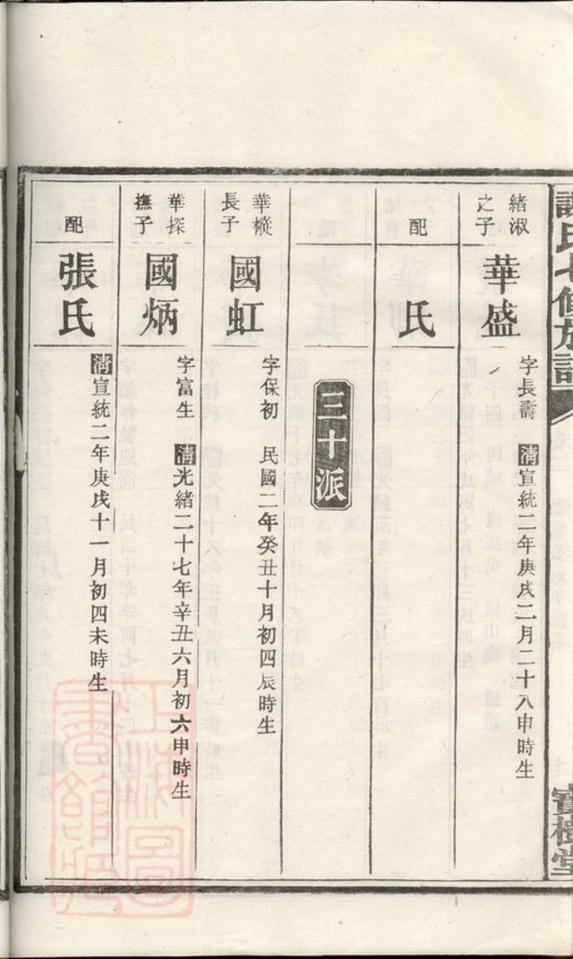 謝氏七修族譜
寶樹堂
緒淑之子
華盛
字長壽 清宣統二年庚戌二月二十八申時生
配
氏
三十派
華樅長子
國虹
字保初 民國二年癸丑十月初四辰時生
華探撫子
國炳
字富生 清光緒二十七年辛丑六月初六申時生
配
張氏
清宣統二年庚戌十一月初四未時生
上海圖書館藏